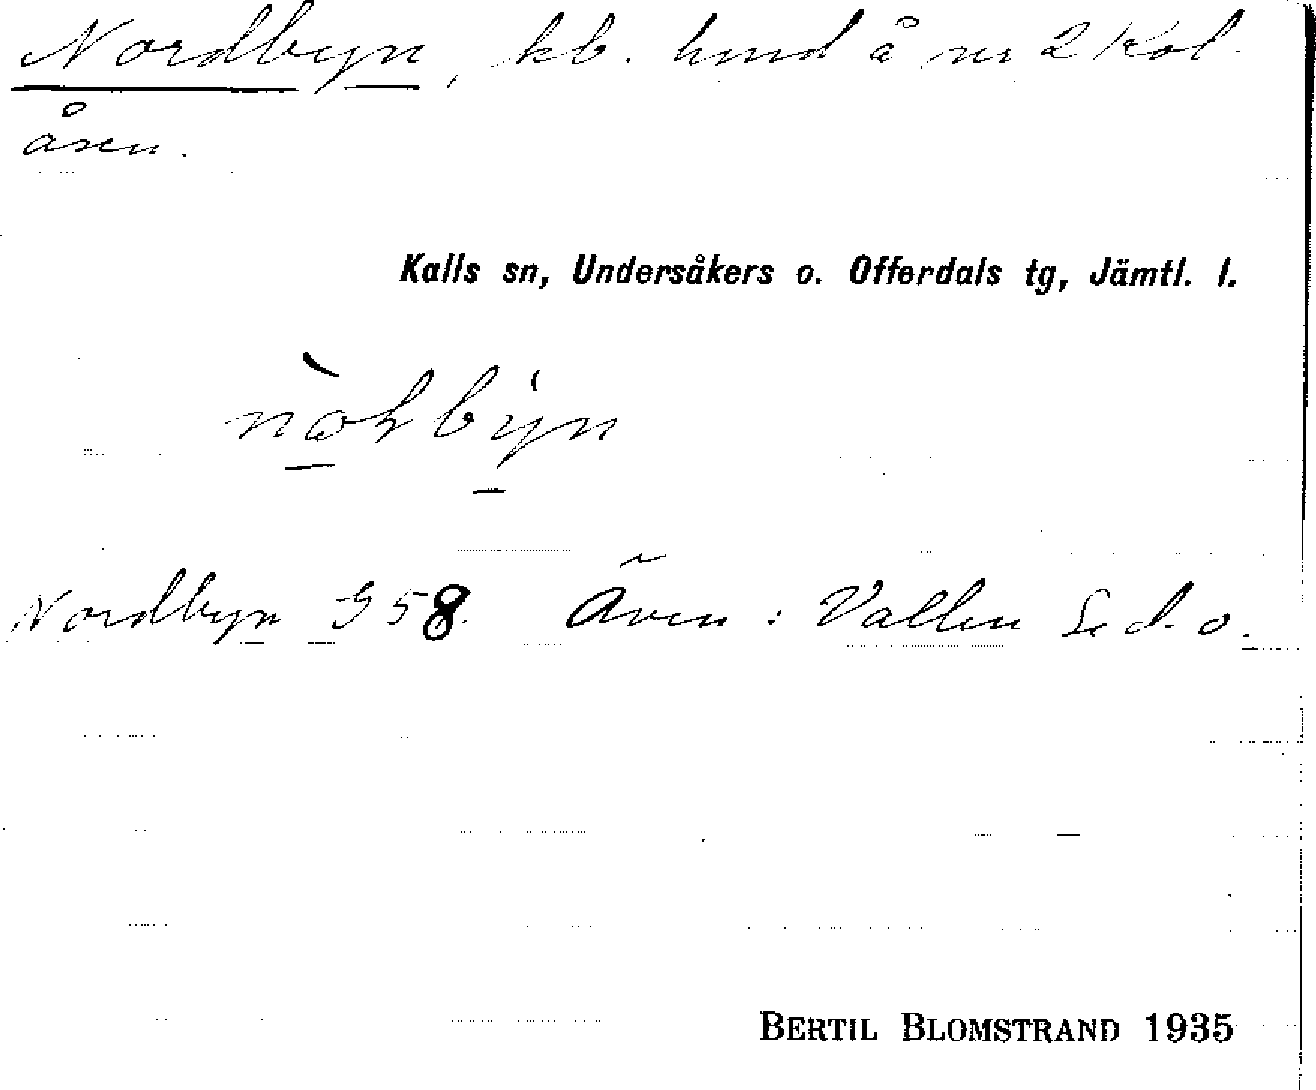 Nordbyn, kb. hmd å nr 2 Kol-
åsen.
Kalls sn, Undersåkers o. Offerdals tg, Jämtl. l.
Nordbyn G58. Även: Vallen Se d. o.
BERTIL BLOMSTRAND 1935